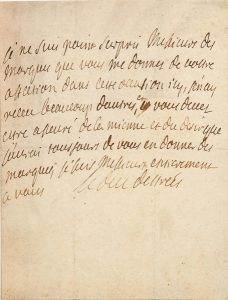 je ne suis point surpris Messieurs des
marques que vous me donnes de vostre
affection dans cette occasion icy, j'en ay
receu beaucoup dautres, vous deves
estre assuré de la mienne et du desir que
j'aurai tousjours de vous en donner des
marques je suis Messieurs entierement
a vous
le duc destrées